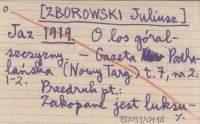 [ZBOROWSKI Juliusz]
Jaz 1919. O los góral-
szczyzny. - Gazeta Podha-
lańska (Nowy Targ) t. 7, nr 2:
1-2.
Przedruk pt.:
Zakopane jest luksu-